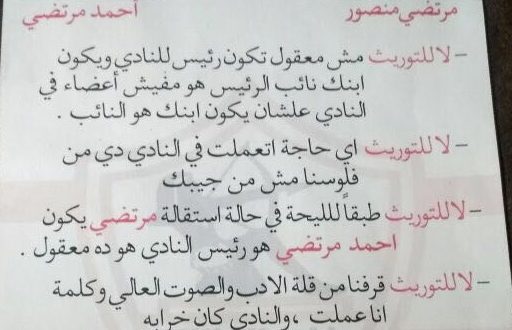 مرتضي منصور أحمد مرتضي
- لا للتوريث مش معقول تكون رئيس للنادي ويكون
ابنك نائب الرئيس هو مفيش أعضاء في
النادي علشان يكون ابنك هو النائب .
- لا للتوريث اي حاجة اتعملت في النادي دي من
فلوسنا مش من جيبك
- لا للتوريث طبقاً لليحة في حالة استقالة مرتضي يكون
احمد مرتضي هو رئيس النادي هو ده معقول .
- لا للتوريث قرفنا من قلة الادب والصوت العالي وكلمة
انا عملت ، والنادي كان خرابه